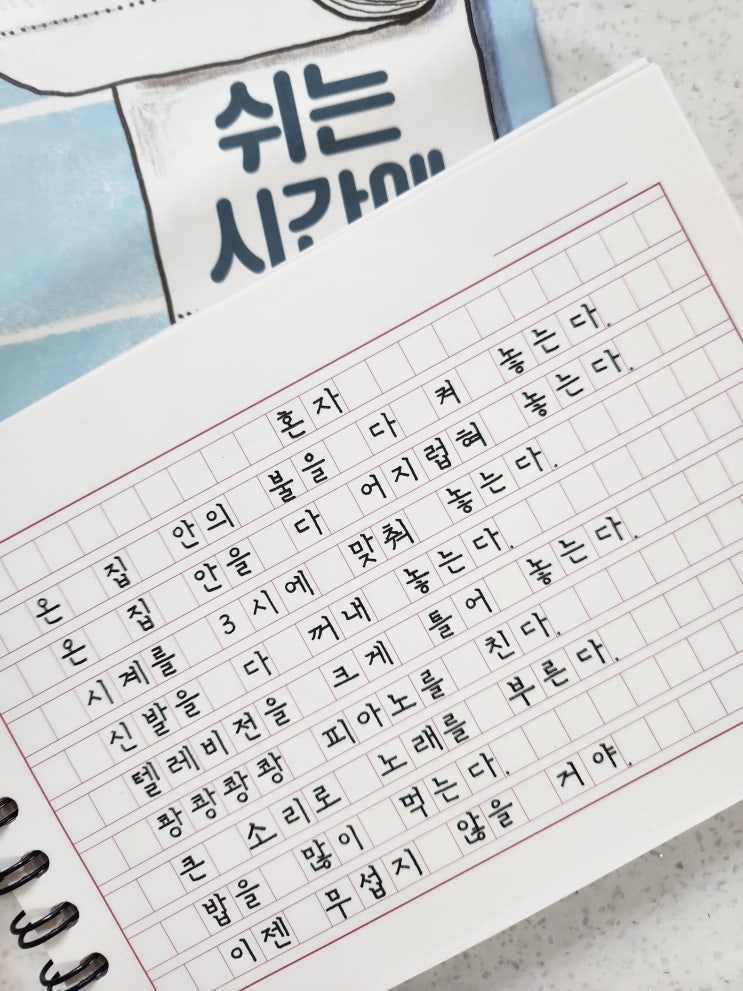 쉬는
시간에
혼자
온 집 안의 불을 다 켜 놓는다.
온 집 안을 다 어지럽혀 놓는다.
시계를 3시에 맞춰 놓는다.
신발을 다 꺼내 놓는다.
텔레비전을 크게 틀어 놓는다.
쾅쾅쾅쾅 피아노를 친다.
큰 소리로 노래를 부른다.
밥을 많이 먹는다.
이젠 무섭지 않을 거야.